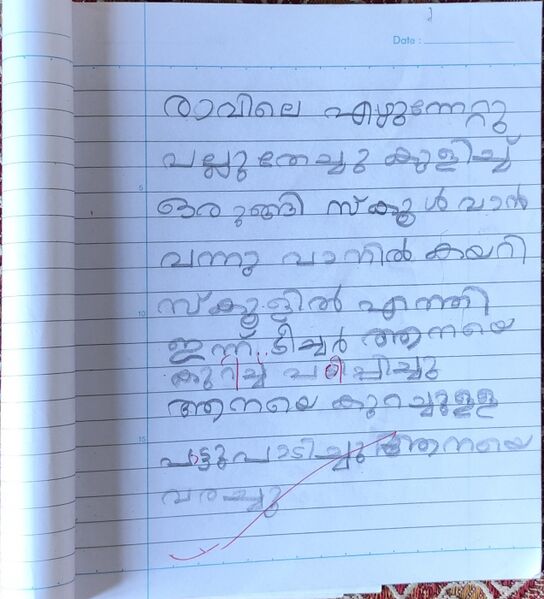 Date :
രാവിലെ എഴുന്നേറ്റു
പല്ലു തേച്ചു കുളിച്ച്
ഒരുങ്ങി സ്കൂൾ വാൻ
വന്നു വാനിൽ കയറി
സ്കൂളിൽ എത്തി
ഇന്ന് ടീച്ചർ ആനയെ
കുറിച്ച് പഠിപ്പിച്ചു
ആനയെ കുറച്ചുള്ള
പാട്ടുപാടിച്ചു ആനയെ
വരച്ചു
5
10
15